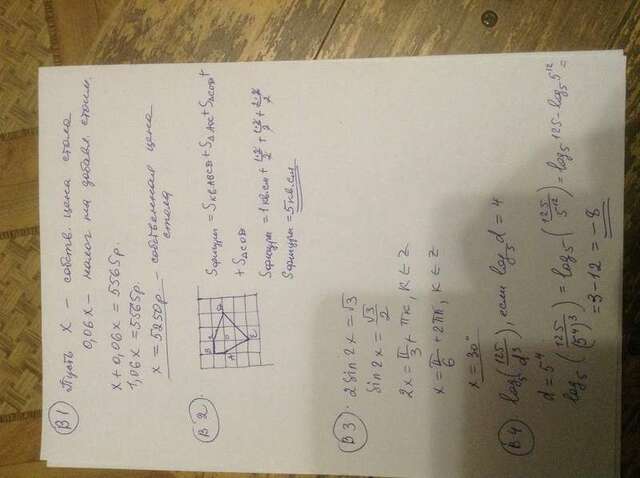 В1 Пусть х – собств. цена стола
0,06х – налог на добавл. стоим.
х + 0,06х = 5565р.
1,06х = 5565р.
х = 5250р – собственная цена
стола
В2
В
А
Е
Sфигуры = Sкв.АВСD + S△АОС + S△СОD +
+ S△СОD
Sфигуры = 1 кв.см + 1·2/2 + 1·2/2 + 2·2/2
Sфигуры = 5 кв.см
В3. 2 sin 2x = √3
sin 2x = √3/2
2x = π/3 + πк, к ∈ Z
x = π/6 + 2πк, к ∈ Z
x = 30°
В4 log₅(125/d³), если log₅ d = 4
d = 5⁴
log₅(125/(5⁴)³) = log₅(125/5¹²) = log₅125 – log₅5¹² =
= 3 – 12 = –8